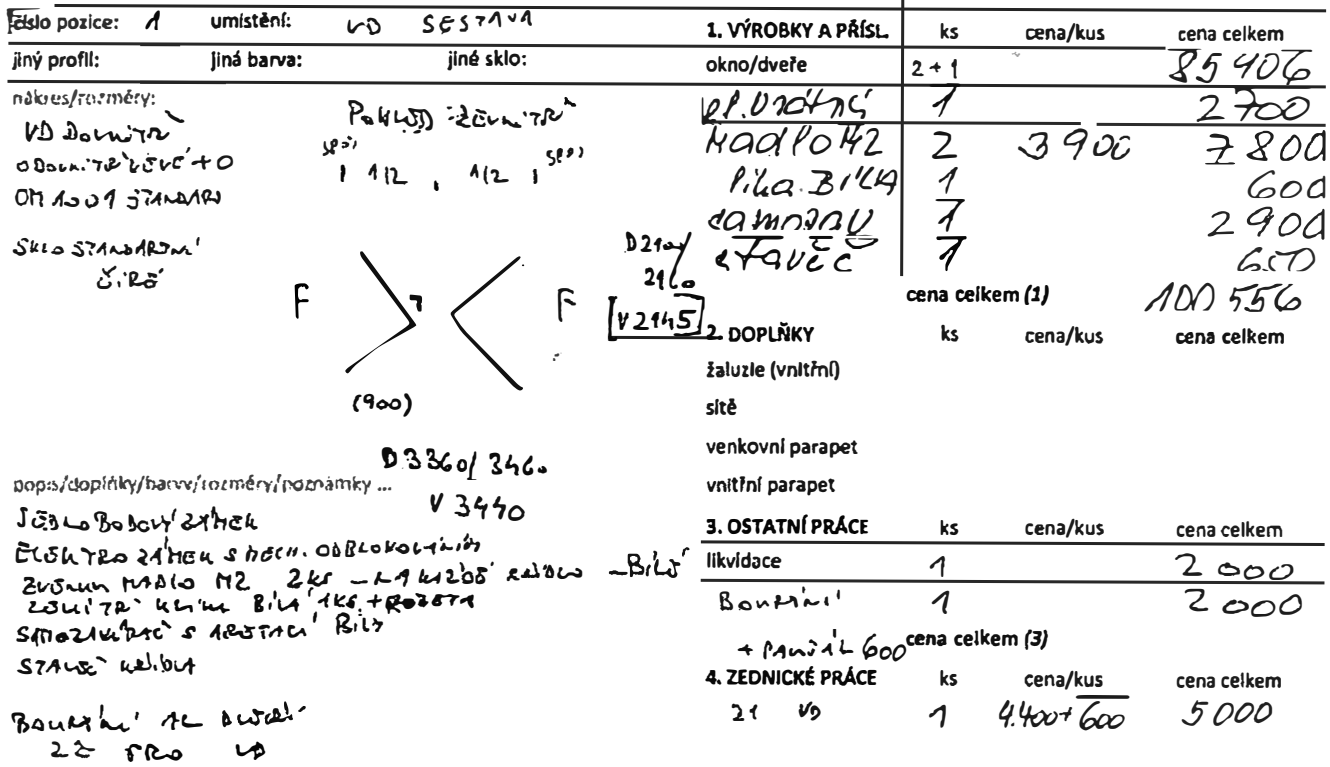 číslo pozice: 1 umístění: VD SESTAVA
jiný profil: jiná barva: jiné sklo:
nákres/rozměry:
VD DOVNITŘ POHLED ZEVNITŘ
+ O
OM 1001 STANDARD
1/2 1/2
SKLO STANDARDNÍ
ČIRÉ
F F
D210 /
2160
V2145
(900)
D 3360/ 3460
V 3440
popis/doplňky/barvy/rozměry/poznámky ...
ZÁMEK
ELEKTRO ZÁMEK S MECH. ODBLOKOVÁNÍM
MADLO M2 2KS KŘÍDLO - BÍLÉ
ZEVNITŘ KLIKA BÍLÁ 1KS + ROZETA
SAMOZAVÍRAČ S ARETACÍ BÍLÝ
STAVĚČ KŘÍDLA
BOURÁNÍ
PRO VD
1. VÝROBKY A PŘÍSL. ks cena/kus cena celkem
okno/dveře 2 + 1 85 406
el. vrátný 1 2 700
Madlo M2 2 3 900 7 800
Bílá 1 600
samozav 1 2 900
stavěč 1 650
cena celkem (1) 100 556
2. DOPLŇKY ks cena/kus cena celkem
žaluzie (vnitřní)
sítě
venkovní parapet
vnitřní parapet
3. OSTATNÍ PRÁCE ks cena/kus cena celkem
likvidace 1 2 000
Bourání 1 2 000
+ PAUŠÁL 600 cena celkem (3)
4. ZEDNICKÉ PRÁCE ks cena/kus cena celkem
VD 1 4.400 + 600 5 000